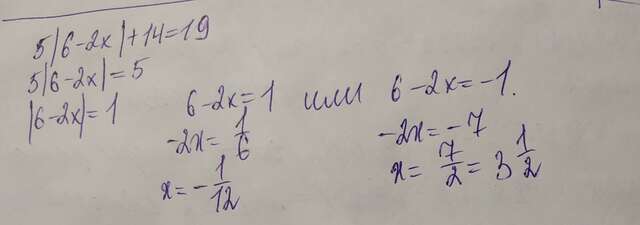 5|6-2x|+14=19
5|6-2x|=5
|6-2x|=1
6-2x=1 или 6-2x=-1.
-2x=1/6
x=-1/12
-2x=-7
x=7/2=3 1/2